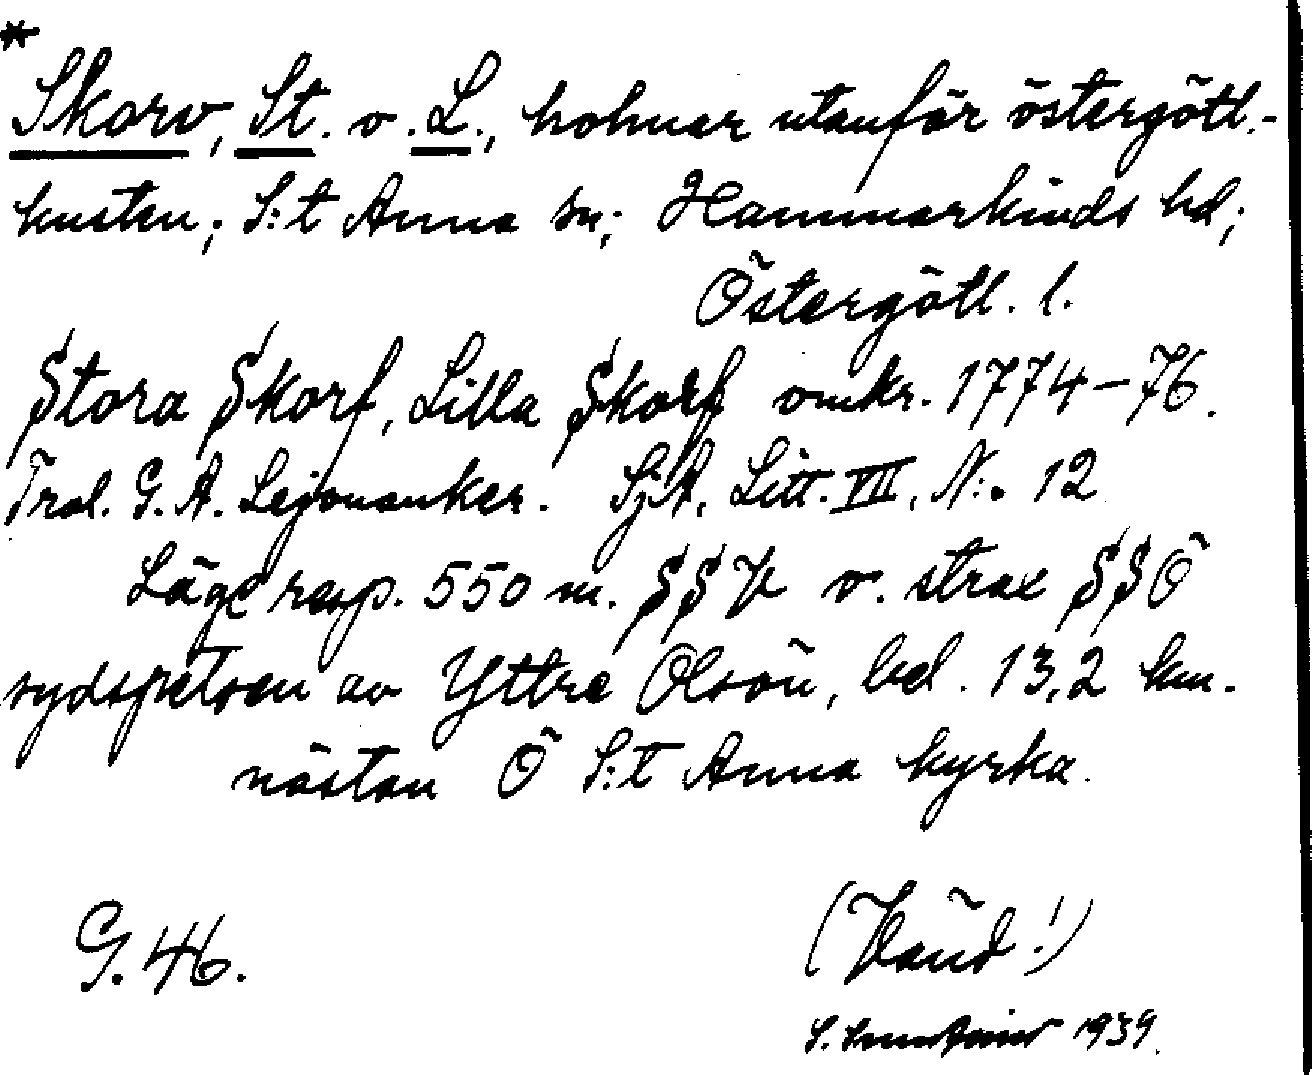 *
Skorv, St. o. L., holmar utanför östergötl.-
kusten; S:t Anna sn; Hammarkinds hd;
Östergötl. l.
Stora Skorf, Lilla Skorf omkr. 1774–76.
Tral. G. A. Lejonanker. SjA, Litt. VII, N:o 12
Läge resp. 550 m. SSV o. strax SSÖ
sydspetsen av Yttre Olsön, bel. 13,2 km.
nästan Ö S:t Anna kyrka.
G. 46. (Vänd!)
1939.